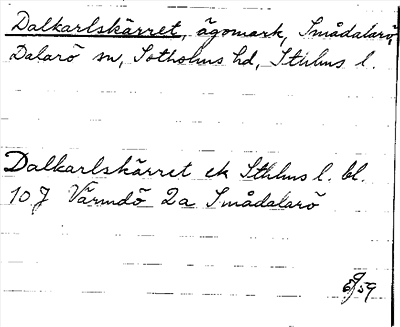 Dalkarlskärret, ägomark, Smådalarö,
Dalarö sn, Sotholms hd, Sthlms l.
Dalkarlskärret ek Sthlms l. bl.
10J Värmdö 2a Smådalarö